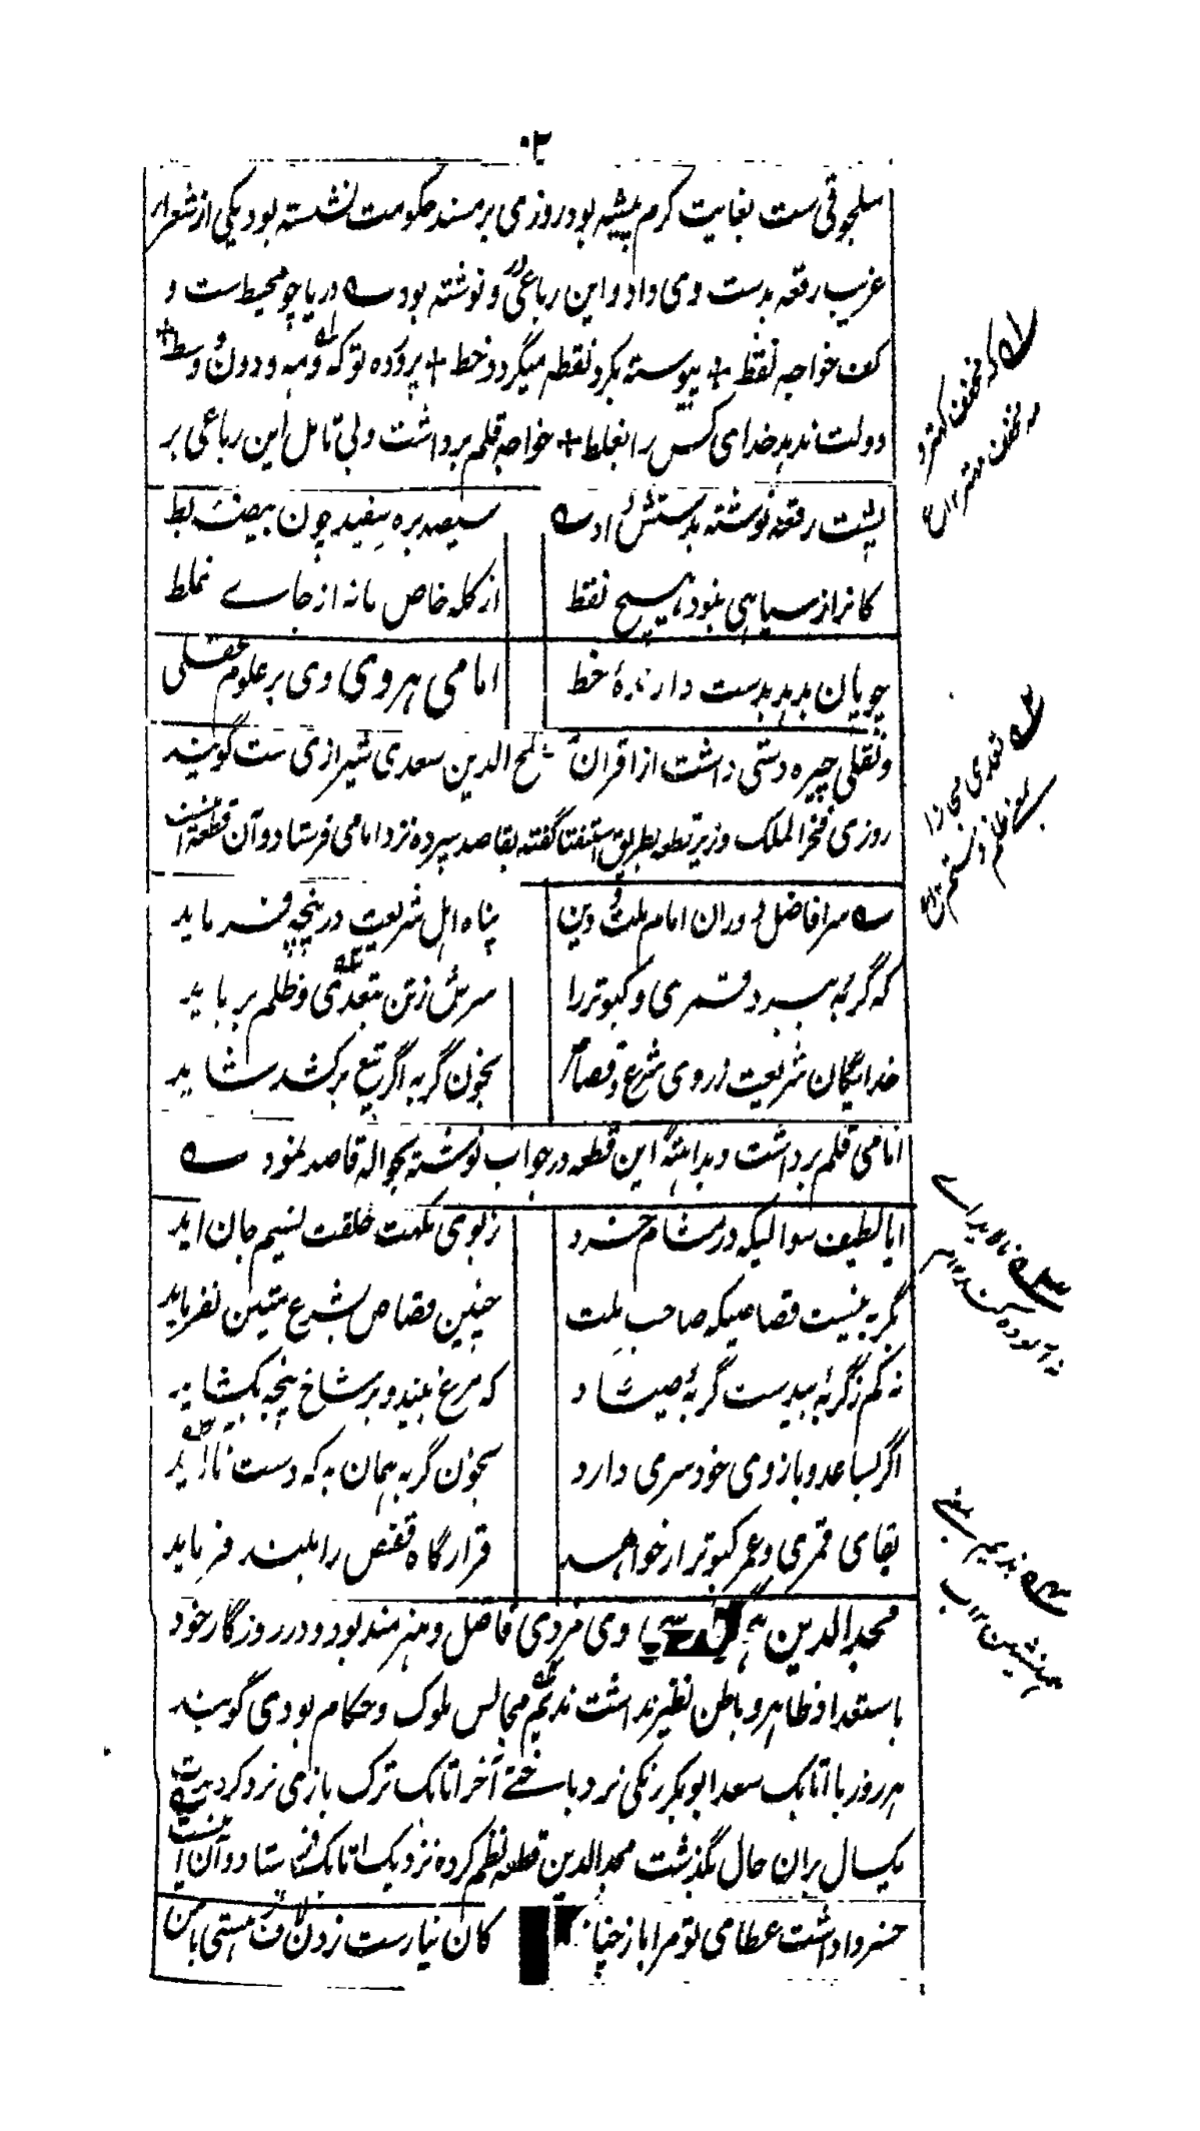 ۳۰
سلجوقی ست بغایت کرم پیشه بود روزی بر مسند حکومت نشسته بود یکی از شعرار
غریب رقعه بدست وی داد و این رباعی در و نوشته بود ؎ دریا چو محیط ست و
کف خواجه نقط + پیوسته بگرد نقطه میگردد خط + پرورده تو که و مه و دون و وسط +
دولت ندهد خدای کس را بغلط + خواجه قلم برداشت و بی تامل این رباعی بر
پشت رقعه نوشته بدستش داد ؎ سیصد بره سفید چون بیضهٔ بط
کانرا ز سیاهی نبود هیچ نقط از گله خاص ما نه از جاے غلط
چوپان بدهد بدست دارندهٔ خط امامی هروی وی بر علوم عقلی
و نقلی چیره دستی داشت از اقران مصلح الدین سعدی شیرازی ست گویند
روزی فخر الملک وزیر قطعه بطریق استفتا گفته بقاصد سپرده نزد امامی فرستاد و آن قطعه اینست
؎ سر افاضل دوران امام ملت و دین پناه اهل شریعت درینچه فرماید
که گربهٔ ببرد قمری و کبوتر را سرش ز تن بتعدی و ظلم برباید
خدایگان شریعت ز روی شرع و قصاص بخون گربه اگر تیغ برکشد شاید
امامی قلم برداشت و بداهتهً این قطعه در جواب نوشته بحواله قاصد نمود ؎
ایا لطیف سوالیکه در مشام خرد ز بوی نکهت خلقت نسیم جان آید
بگربه نیست قصاصیکه صاحب ملت چنین قصاص بشرع متین نفرماید
نه کم ز گربهٔ بیدست گربهٔ صیاد که مرغ بیند و بر شاخ پنجه نگشاید
اگر بساعد و بازوی خود سری دارد بخون گربه همان به که دست نالاید
بقای قمری و عمر کبوتر ار خواهد قرارگاه قفص را بلند فرماید
مجد الدین وی مردی فاضل و هنرمند بود و در روزگار خود
باستعداد ظاهر و باطن نظیر نداشت ندیم مجالس ملوک و حکام بودی گویند
هر روز با اتابک سعد ابوبکر زنگی نرد باختے آخر اتابک ترک بازی نرد کرد مدت
یکسال بران حال بگذشت مجد الدین قطعه نظم کرده نزدیک اتابک فرستاد و آن اینست
خسروا داشت عطامی تو مرا باز چنان کان نیارست زدن هستی با من
که مخفف کهتر و
مه مخفف مهتر ۱۲
تعدی مجازا
بمعنی ظلم و ستم
نالاید اے
نه آلوده کند ۱۲
ندیم بمعنی
همنشین ۱۲